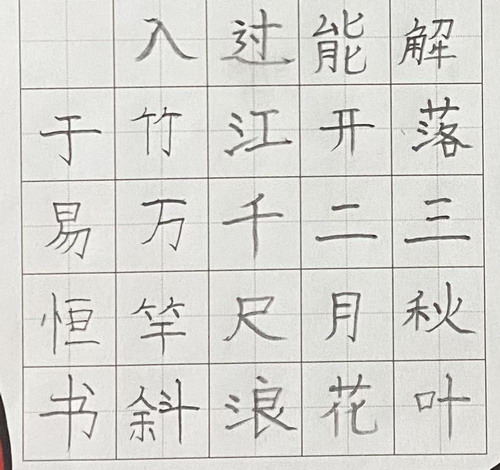 解落三秋叶
能开二月花
过江千尺浪
入竹万竿斜
于易恒书